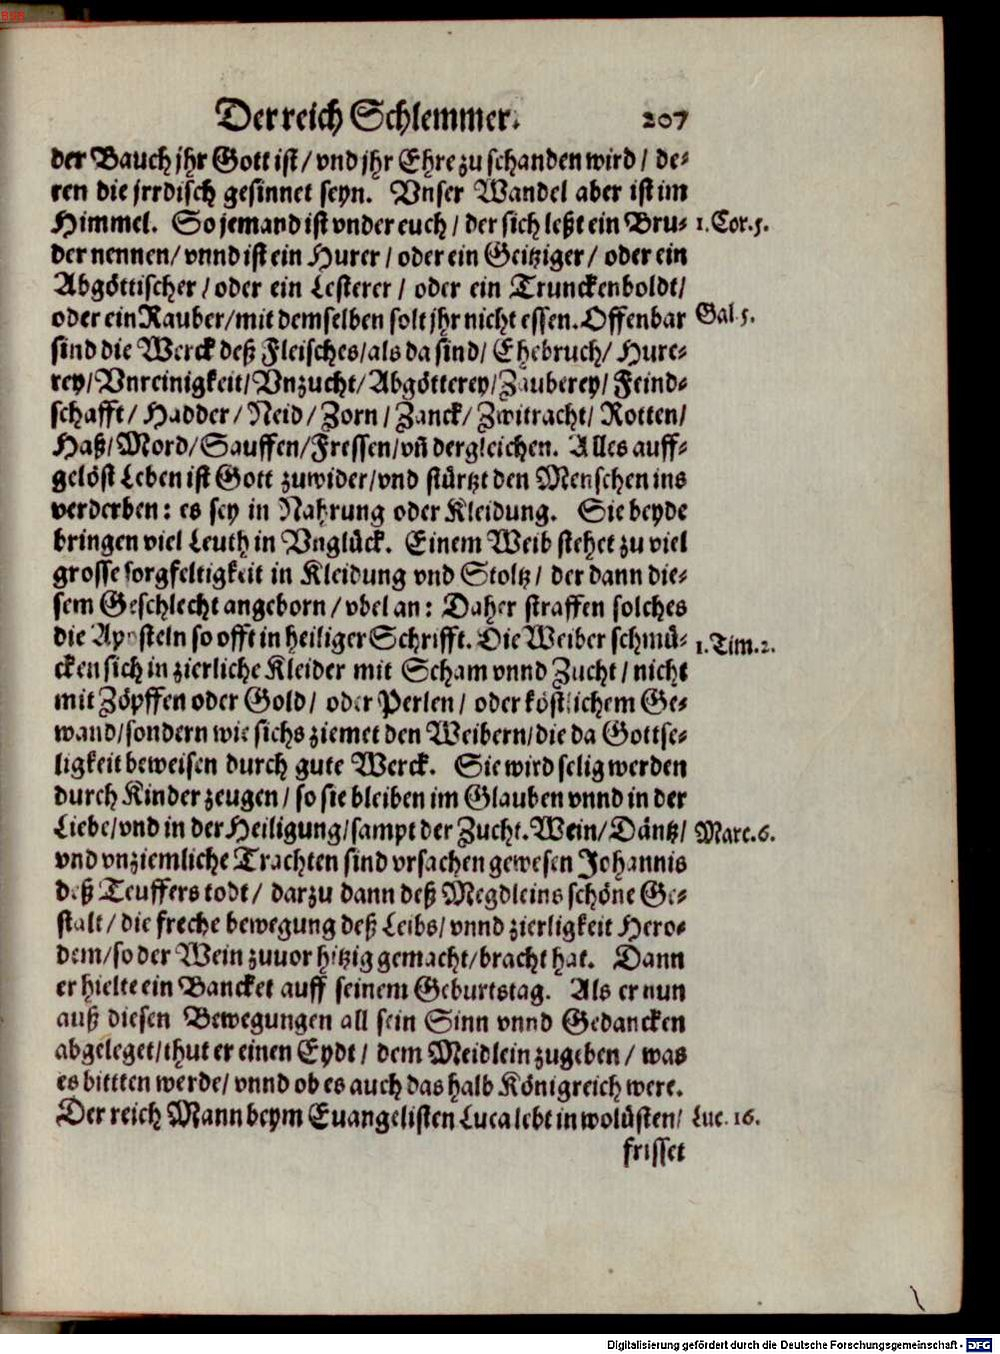 Der reich Schlemmer. 207
der Bauch jhr Gott ist/ vnd jhr Ehre zu schanden wird/ de-
ren die jrrdisch gesinnet seyn. Vnser Wandel aber ist im
Himmel. So jemand ist vnder euch/ der sich leßt ein Bru- 1. Cor. 5.
der nennen/ vnnd ist ein Hurer/ oder ein Geitziger/ oder ein
Abgöttischer/ oder ein Lesterer/ oder ein Trunckenboldt/
oder ein Rauber/ mit demselben solt jhr nicht essen. Offenbar Gal. 5.
sind die Werck deß Fleisches/ als da sind/ Ehebruch/ Hure-
rey/ Vnreinigkeit/ Vnzucht/ Abgötterey/ Zauberey/ Feind-
schafft/ Hadder/ Neid/ Zorn/ Zanck/ Zwitracht/ Rotten/
Haß/ Mord/ Sauffen/ Fressen/ vñ dergleichen. Alles auff-
gelöst Leben ist Gott zuwider/ vnd stürtzt den Menschen ins
verderben: es sey in Nahrung oder Kleidung. Sie beyde
bringen viel Leuth in Vnglück. Einem Weib stehet zu viel
grosse sorgfeltigkeit in Kleidung vnd Stoltz/ der dann die-
sem Geschlecht angeborn/ vbel an: Daher straffen solches
die Aposteln so offt in heiliger Schrifft. Die Weiber schmü- 1. Tim. 2.
cken sich in zierliche Kleider mit Scham vnnd Zucht/ nicht
mit Zöpffen oder Gold/ oder Perlen/ oder köstlichem Ge-
wand/ sondern wie sichs ziemet den Weibern/ die da Gottse-
ligkeit beweisen durch gute Werck. Sie wird selig werden
durch Kinder zeugen/ so sie bleiben im Glauben vnnd in der
Liebe/ vnd in der Heiligung/ sampt der Zucht. Wein/ Däntz/ Marc. 6.
vnd vnziemliche Trachten sind vrsachen gewesen Johannis
deß Teuffers todt/ darzu dann deß Megdleins schöne Ge-
stalt/ die freche bewegung deß Leibs/ vnnd zierligkeit Hero-
dem/ so der Wein zuuor hitzig gemacht/ bracht hat. Dann
er hielte ein Bancket auff seinem Geburtstag. Als er nun
auß diesen Bewegungen all sein Sinn vnnd Gedancken
abgeleget/ thut er einen Eydt/ dem Meidlein zugeben/ was
es bittten werde/ vnnd ob es auch das halb Königreich were.
Der reich Mann beym Euangelisten Luca lebt in wolüsten/ Luc. 16.
frisset
Digitalisierung gefördert durch die Deutsche Forschungsgemeinschaft - DFG